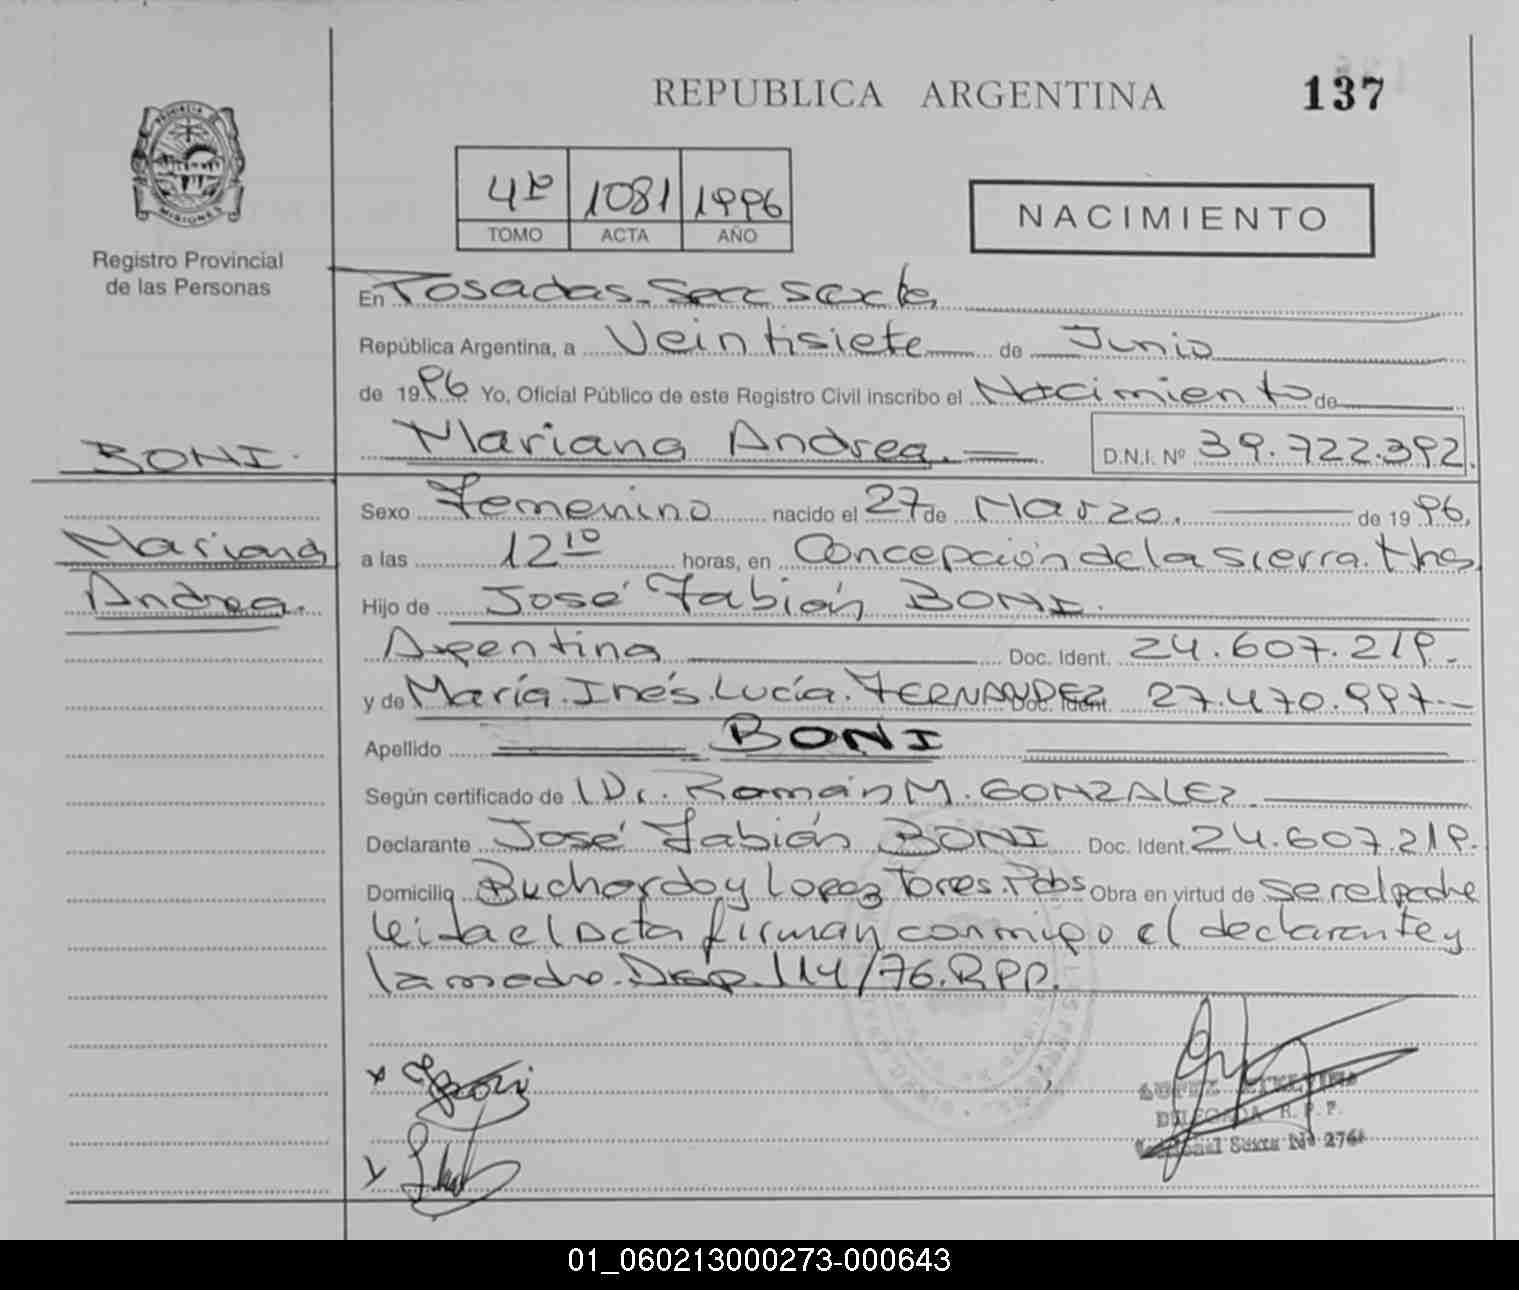 REPUBLICA ARGENTINA
137
PROVINCIA DE
MISIONES
Registro Provincial
de las Personas
4º 1081 1996
TOMO ACTA AÑO
NACIMIENTO
En Posadas Secc Sexta
República Argentina, a Veintisiete de Junio
de 1996 Yo, Oficial Público de este Registro Civil inscribo el Nacimiento de
Mariana Andrea. D.N.I. Nº 39.722.392
BONI.
Mariana
Andrea.
Sexo Femenino nacido el 27 de Marzo. de 1996,
a las 12 10 horas, en Concepción de la Sierra.
Hijo de José Fabián BONI.
Argentina Doc. Ident. 24.607.219.-
y de María.Inés.Lucía.FERNANDEZ Doc. Ident. 27.470.997.-
Apellido BONI
Según certificado de Dr. Román M. GONZALEZ
Declarante José Fabián BONI Doc. Ident. 24.607.219.
Domicilio Buchardo y Lopez Torres.Pdas Obra en virtud de ser el padre
leida el Acta firman conmigo el declarante y
la madre. Disp. 114/76.RPP.
x
LOPEZ ETELVINA
DELEGADA R.P.P.
Seccional Sexta Nº 2764
01_060213000273-000643